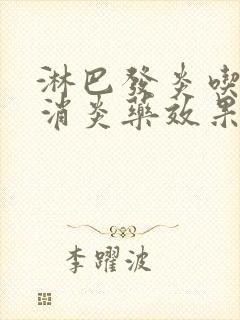 淋巴發炎喫
消炎藥效果
李躍波